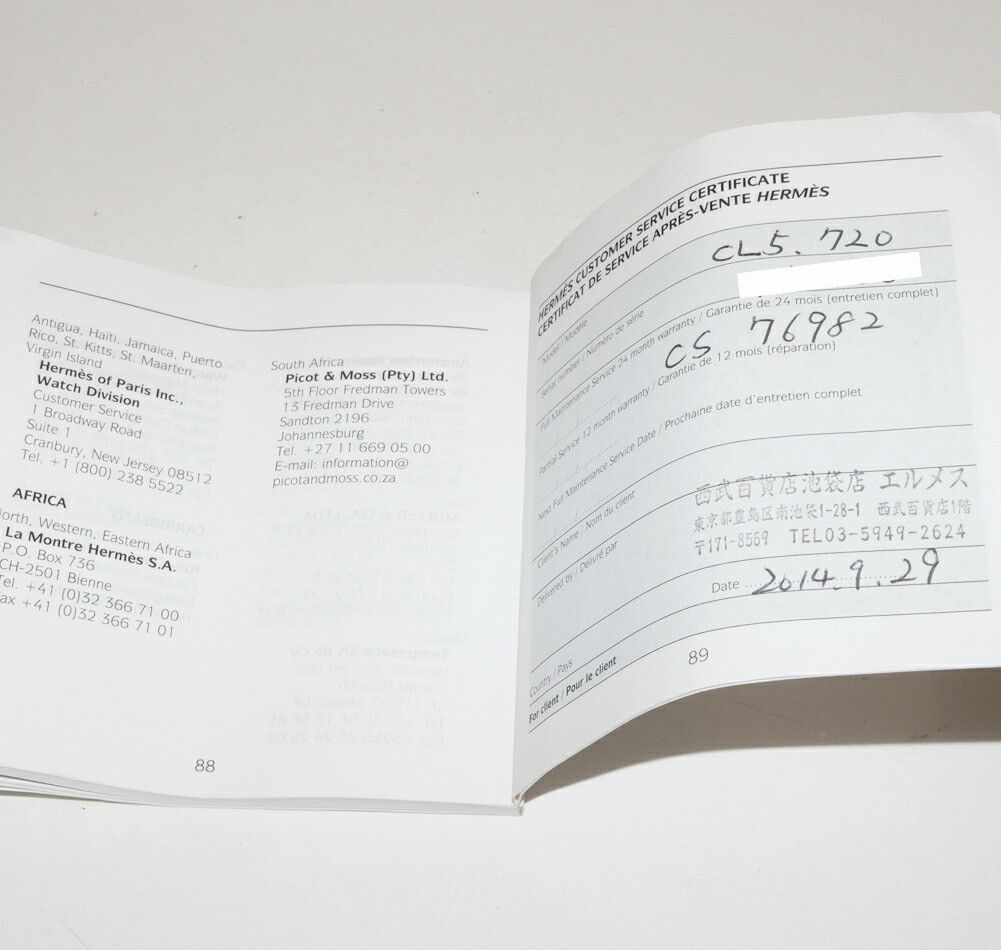 Antigua, Haïti, Jamaica, Puerto
Rico, St. Kitts, St. Maarten,
Virgin Island
Hermès of Paris Inc.,
Watch Division
Customer Service
1 Broadway Road
Suite 1
Cranbury, New Jersey 08512
Tel. +1 (800) 238 5522
AFRICA
North, Western, Eastern Africa
La Montre Hermès S.A.
P.O. Box 736
CH-2501 Bienne
Tel. +41 (0)32 366 71 00
Fax +41 (0)32 366 71 01
South Africa
Picot & Moss (Pty) Ltd.
5th Floor Fredman Towers
13 Fredman Drive
Sandton 2196
Johannesburg
Tel. +27 11 669 05 00
E-mail: information@
picotandmoss.co.za
88
HERMÈS CUSTOMER SERVICE CERTIFICATE
CERTIFICAT DE SERVICE APRÈS-VENTE HERMÈS
Model / Modèle CL5. 720
Serial number / Numéro de série
Full Maintenance Service 24 month warranty / Garantie de 24 mois (entretien complet)
CS 76982
Partial Service 12 month warranty / Garantie de 12 mois (réparation)
Next Full Maintenance Service Date / Prochaine date d'entretien complet
Client's Name / Nom du client
Delivered by / Délivré par
西武百貨店池袋店 エルメス
東京都豊島区南池袋1-28-1 西武百貨店1階
〒171-8569 TEL03-5949-2624
Date 2014.9.29
Country / Pays
For client / Pour le client
89